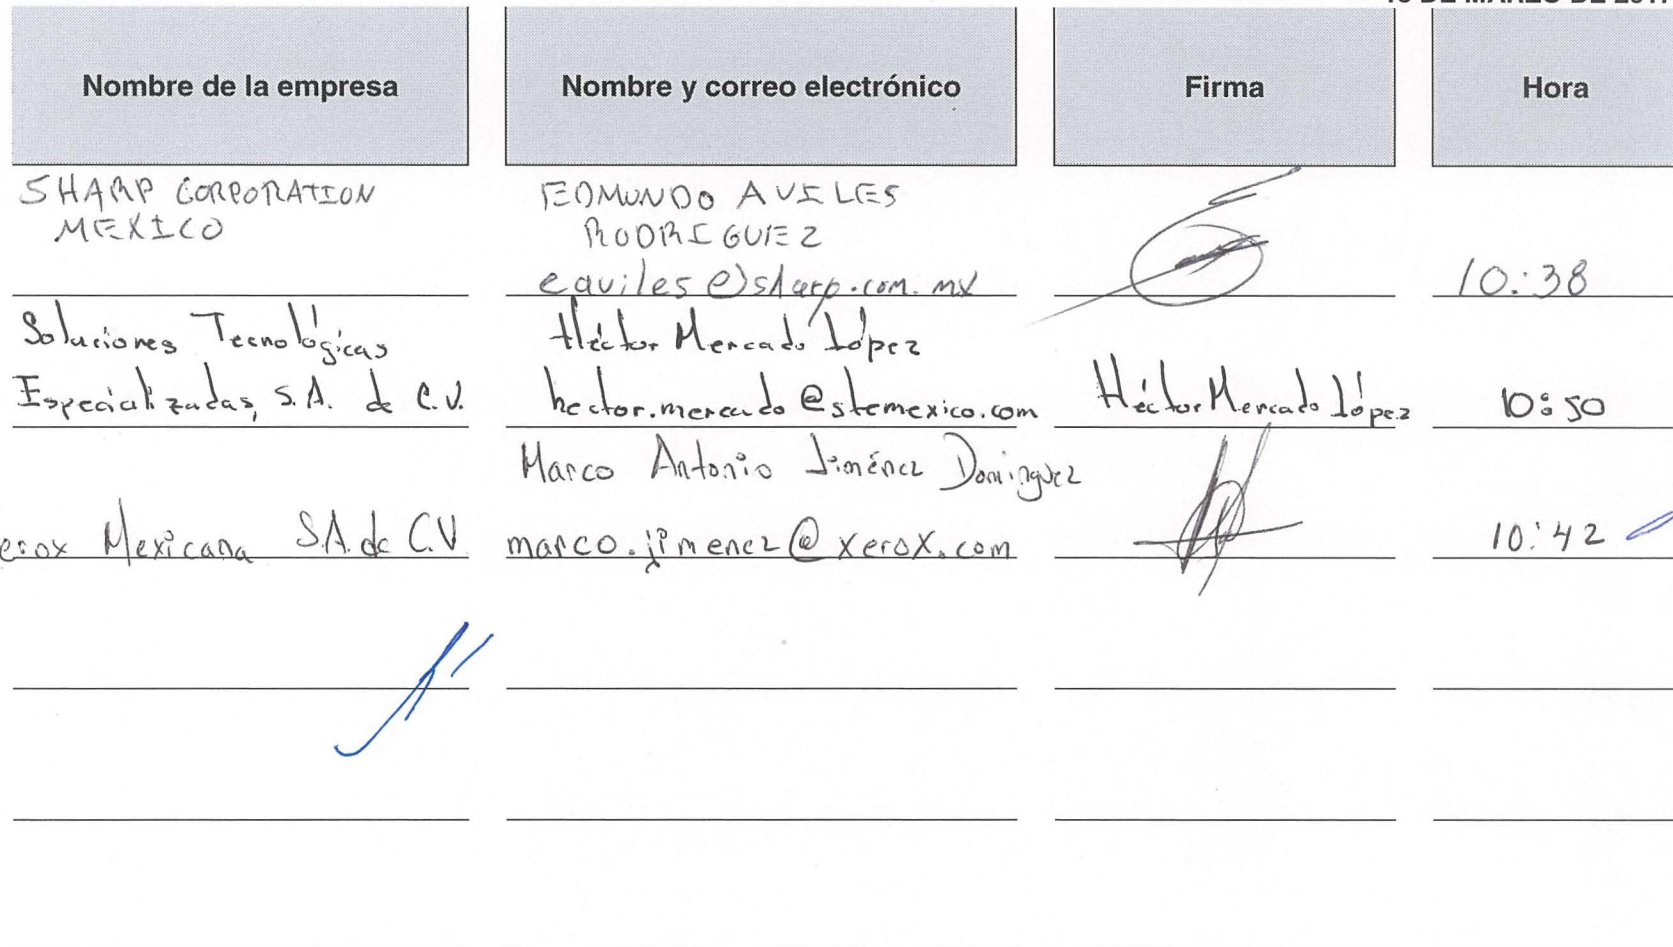 DE MARZO DE 2017
Nombre de la empresa
Nombre y correo electrónico
Firma
Hora
SHARP CORPORATION
MEXICO
EDMUNDO AVILES
RODRIGUEZ
eaviles@sharp.com.mx
10:38
Soluciones Tecnológicas
Especializadas, S.A. de C.V.
Héctor Mercado López
hector.mercado@stemexico.com
Héctor Mercado López
10:50
erox Mexicana S.A. de C.V.
Marco Antonio Jiménez Dominguez
marco.jimenez@xerox.com
10:42